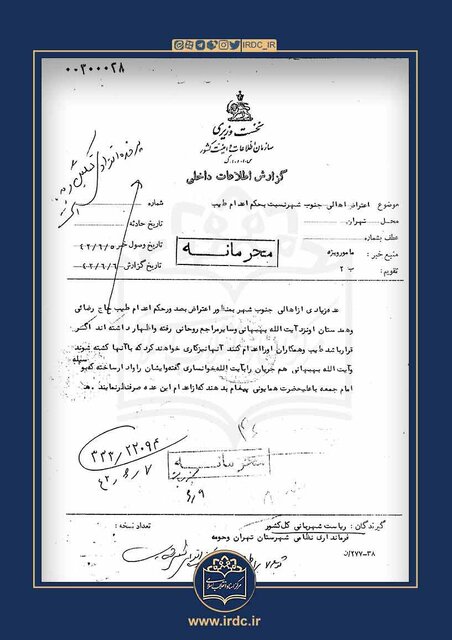 IRDC_IR
۰۰۳۰۰۰۲۸
نخست وزیری
سازمان اطلاعات و امنیت کشور
س.ا.و.ا.ک
گزارش اطلاعات داخلی
موضوع : اعتراض اهالی جنوب شهر نسبت بحکم اعدام طیب
شماره
محل : تهران
تاریخ حادثه
عطف بشماره
تاریخ وصول خبر ۴۲/۶/۵
منبع خبر : مامور ویژه
تاریخ گزارش ۴۲/۶/۶
تقویم : ب ۲
محرمانه
عده زیادی از اهالی جنوب شهر بمنظور اعتراض بصدور حکم اعدام طیب حاج رضائی
و همدستان او نزد آیت الله بهبهانی و سایر مراجع روحانی رفته و اظهار داشته اند اگر
قرار باشد طیب و همکاران او را اعدام کنند آنها نیز کاری خواهند کرد که با آنها کشته شوند
و آیت الله بهبهانی هم جریان را بآیت الله خوانساری گفته و ایشان را وادار ساخته که بوسیله
امام جمعه با علیحضرت همایونی پیغام بدهند که از اعدام این عده صرفنظر نمایند . هـ
۳۳۳/۲۲۰۹۴
۴۲/۶/۷
محرمانه
۶/۹
گیرندگان : ریاست شهربانی کل کشور
تعداد نسخه :
فرمانداری نظامی شهرستان تهران و حومه
۳۸-۲۷۷/ن
مرکز اسناد انقلاب اسلامی
www.irdc.ir